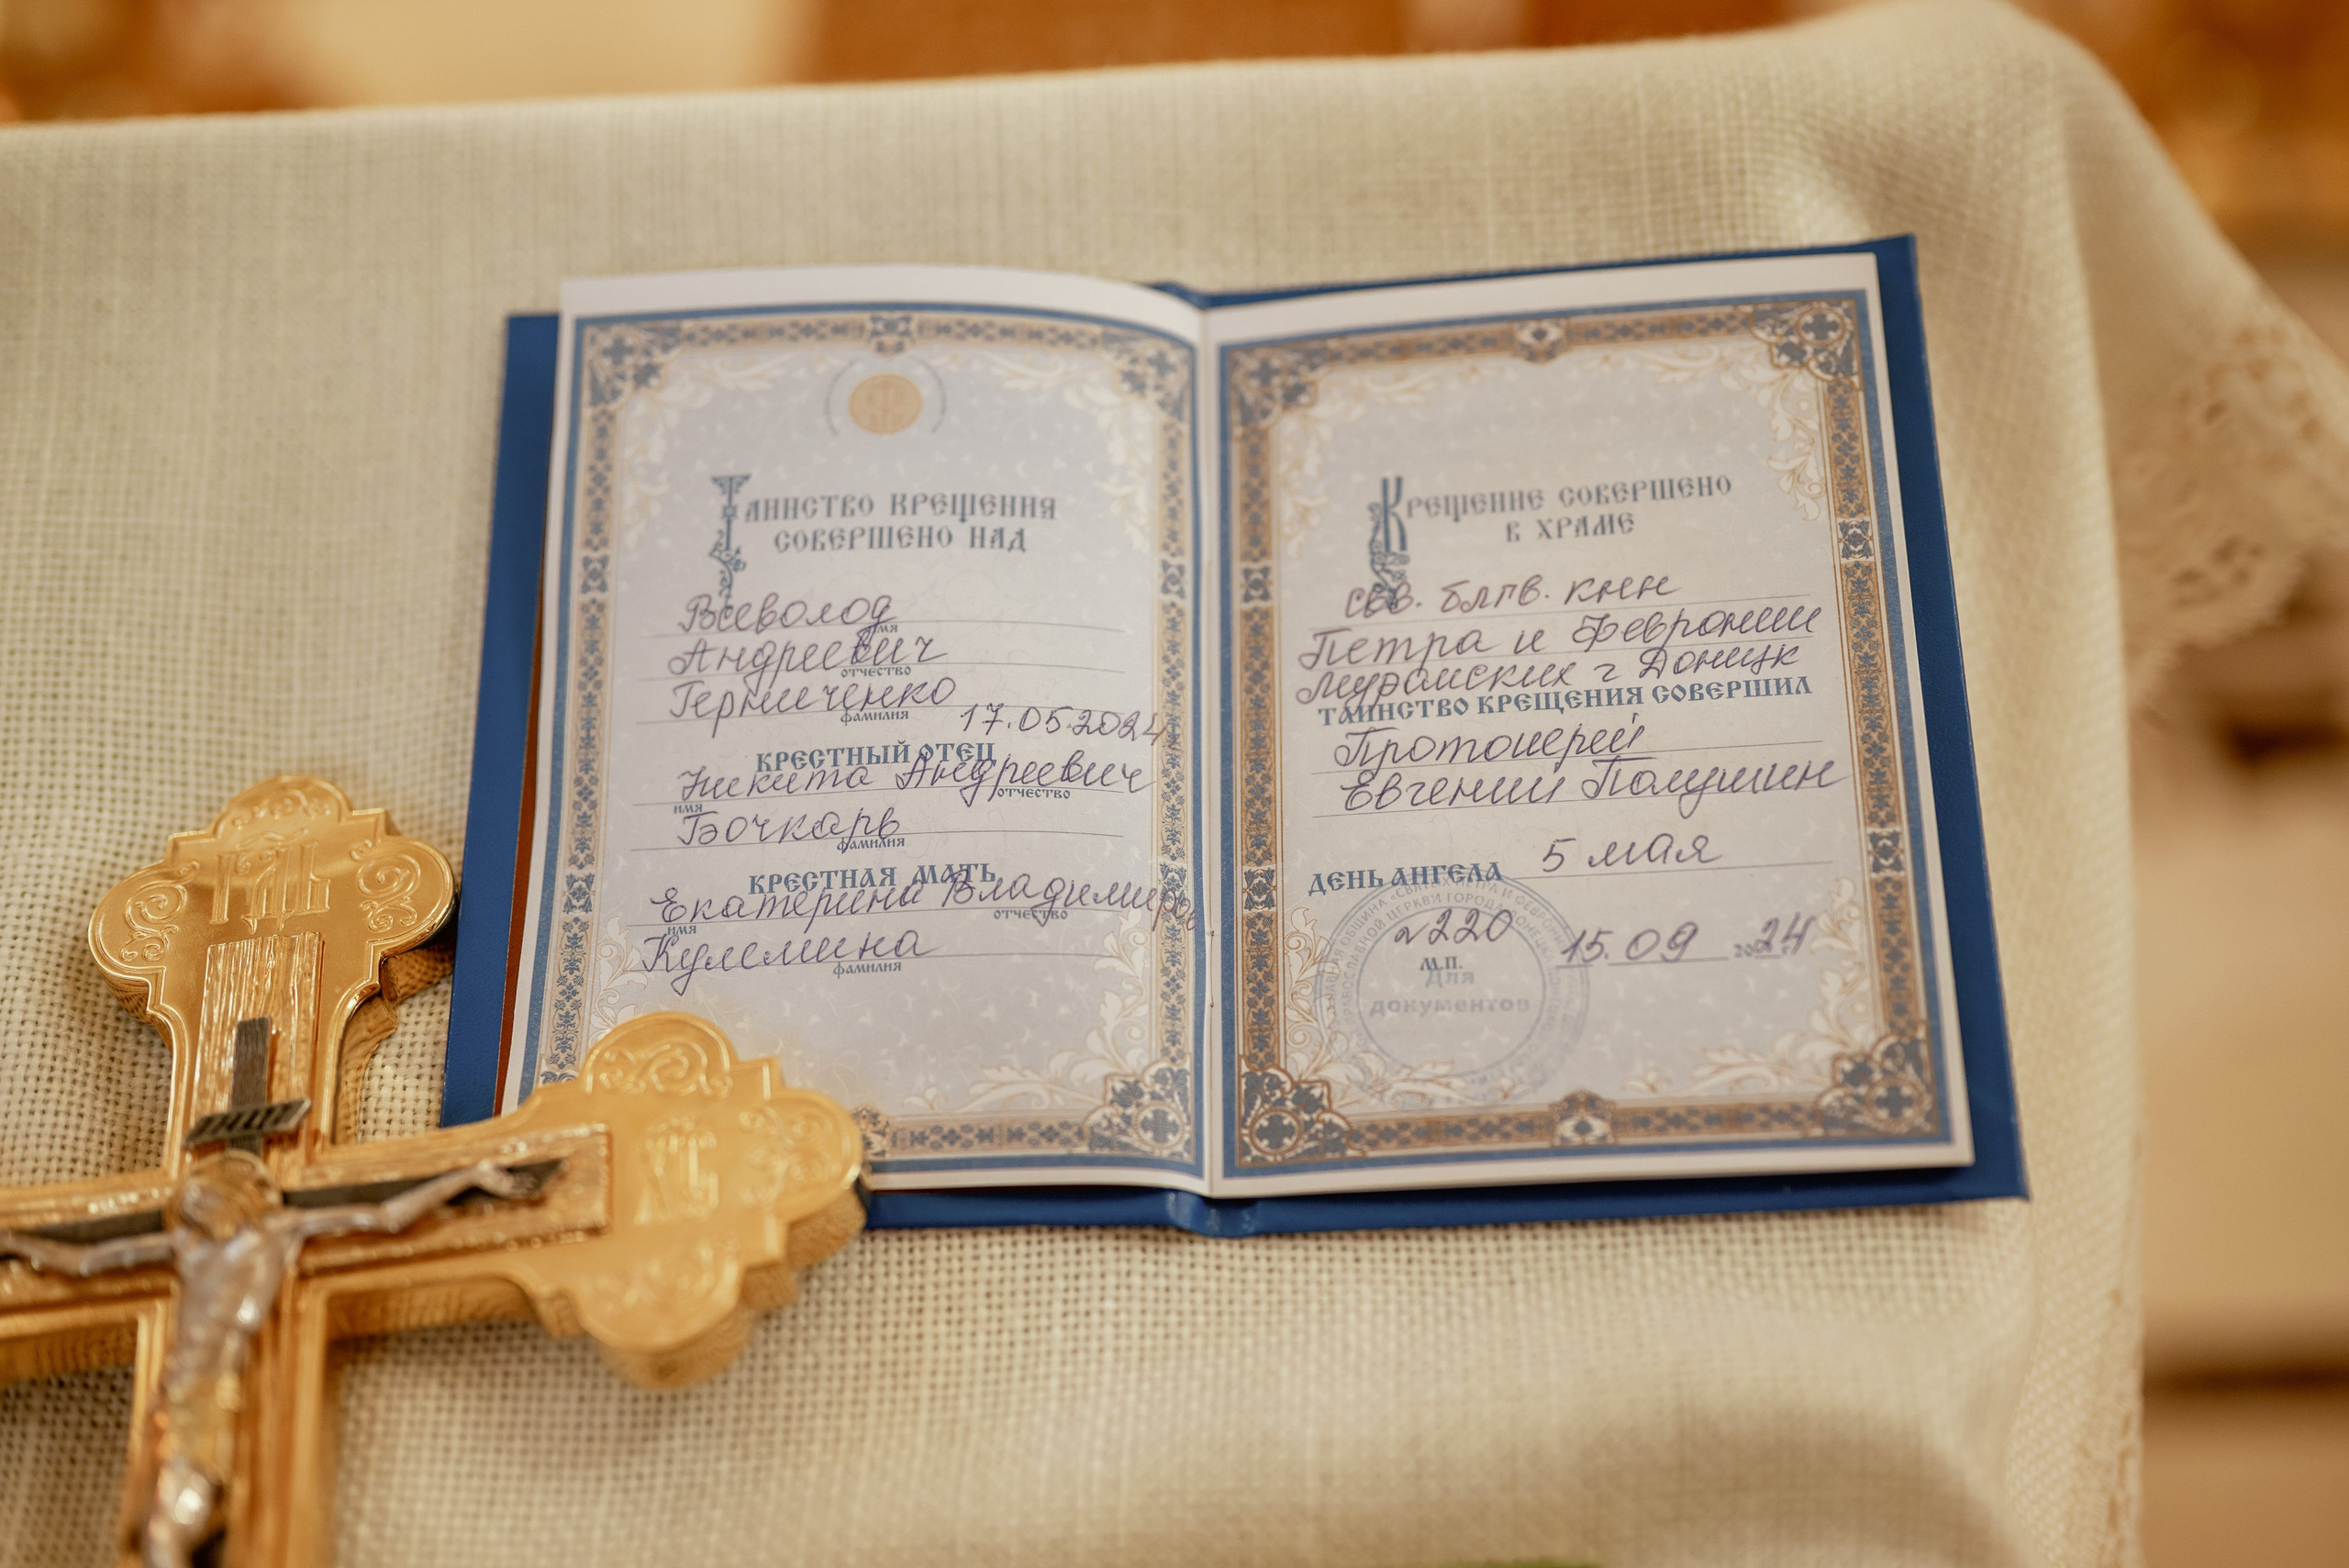 Таинство крещения
совершено над
Всеволод
имя
Андреевич
отчество
Герниченко
фамилия
17.05.2024
крестный отец
Никита Андреевич
имя отчество
Бочкарь
фамилия
крестная мать
Екатерина Владимиров
имя отчество
Кулемина
фамилия
Крещение совершено
в храме
свв. блгв. кнн
Петра и Февронии
Муромских г Донецк
таинство крещения совершил
Протоиерей
Евгений Полушин
день ангела 5 мая
220 15.09 2024
м.п.
Для
документов
ГДЬ